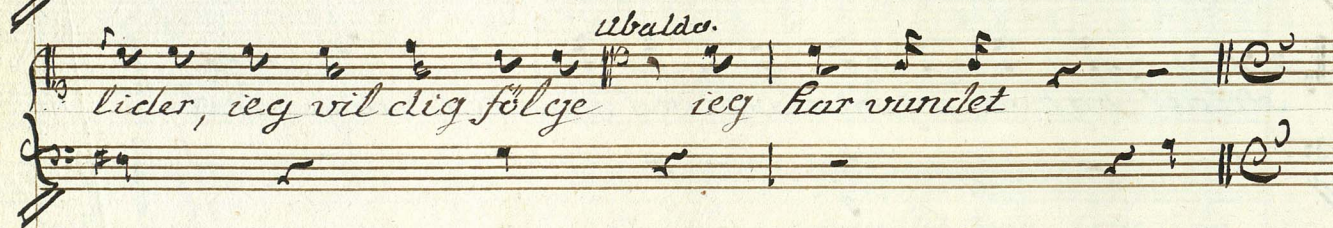 Ubaldo.
lider, ieg vil dig fölge ieg har vundet